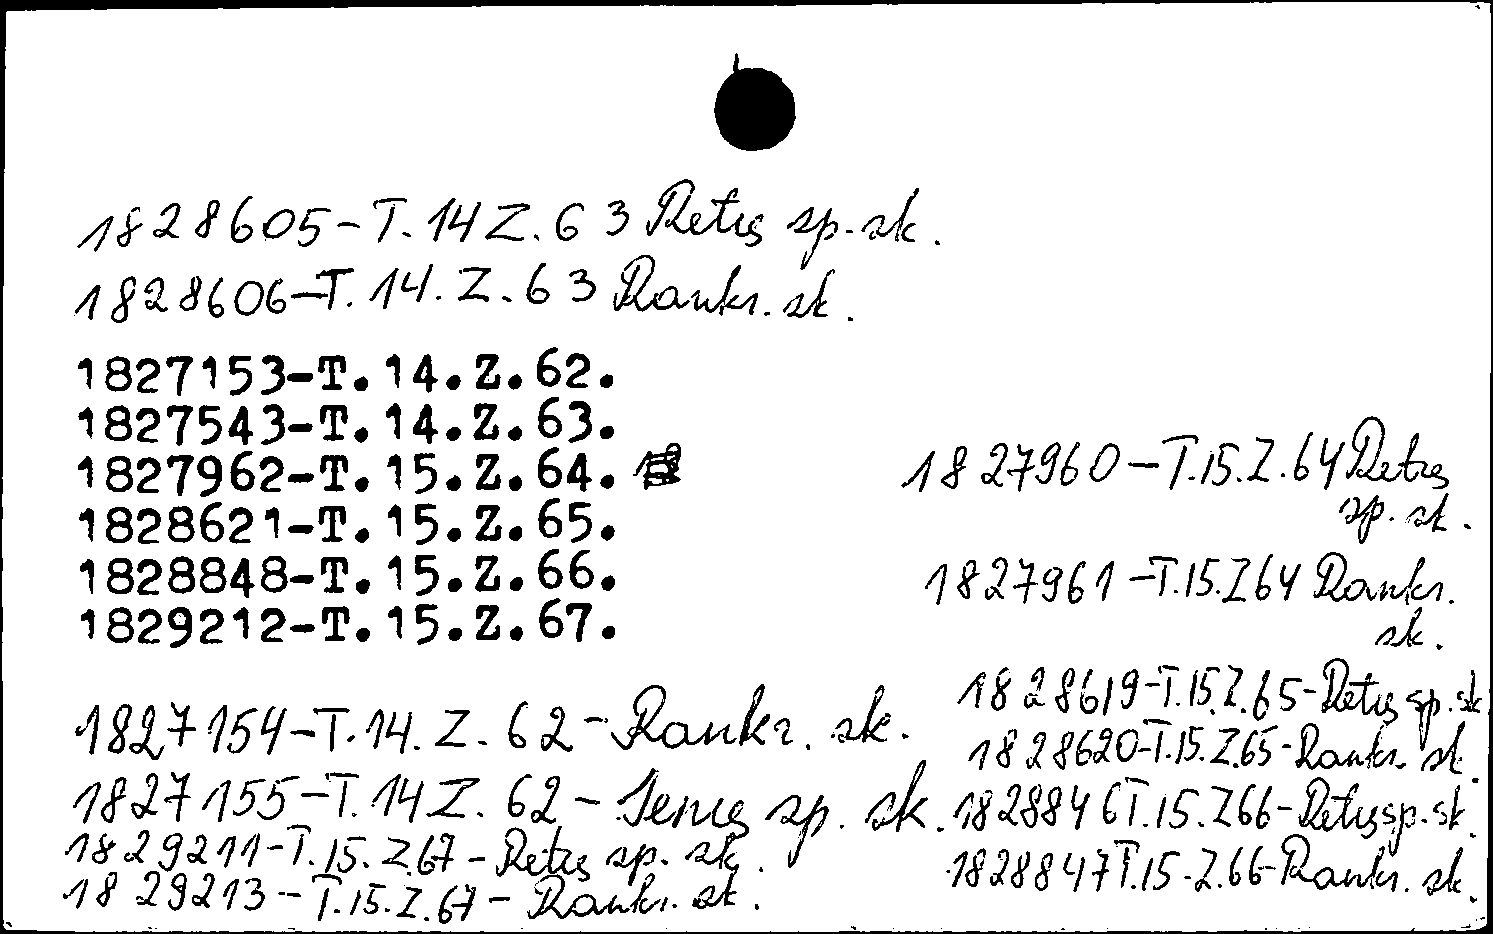 1828605-T.14 Z.63 Retų sp. sk.
1828606-T.14.Z.63 Rankr. sk.
1827153-T.14.Z.62.
1827543-T.14.Z.63.
1827962-T.15.Z.64.
1828621-T.15.Z.65.
1828848-T.15.Z.66.
1829212-T.15.Z.67.
1827154-T.14.Z.62-Rankr. sk.
1827155-T.14 Z.62-Senų sp. sk.
1829211-T.15.Z.67-Retų sp. sk.
1829213-T.15.Z.67-Rankr. sk.
1827960-T.15.Z.64 Retų
sp. sk.
1827961-T.15.Z64 Rankr.
sk.
1828619-T.15.Z.65-Retų sp. sk
1828620-T.15.Z.65-Rankr. sk.
1828846 T.15.Z66-Retų sp. sk.
1828847 T.15.Z.66-Rankr. sk.